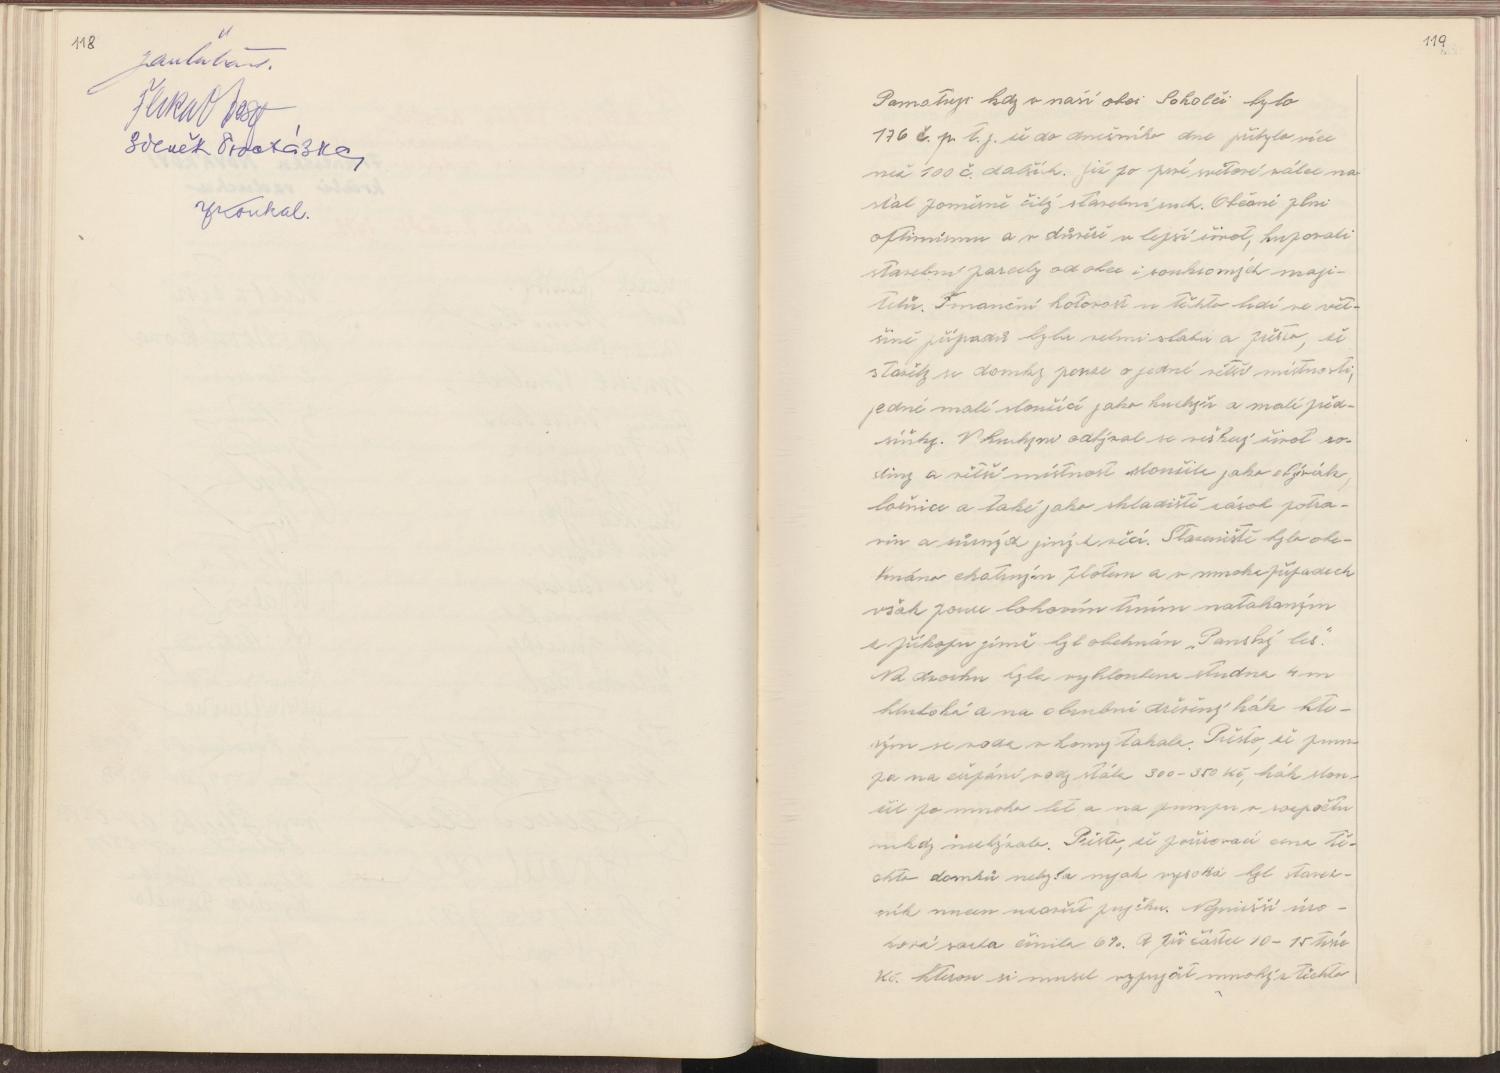 118
Zdeněk Procházka
Koukal.
119
Pamatuji kdy v naší obci Sokolči bylo
176 č. p. t. j. že do dnešního dne přibylo více
než 100 č. dalších. Již po prvé světové válce na-
stal poměrně čilý stavební ruch. Občané plni
optimismu a v důvěře v lepší život, kupovali
stavební parcely od obce i soukromých maji-
telů. Finanční hotovost u těchto lidí ve vět-
šině případů byla velmi slabá a přesto, že
stavěly se domky pouze o jedné větší místnosti,
jedné malé sloužící jako kuchyň a malé před-
síňky. V kuchyni odbýval se veškerý život ro-
diny a větší místnost sloužila jako obývák,
ložnice a také jako skladiště zásob potra-
vin a různých jiných věcí. Staveniště bylo obe-
hnáno chatrným plotem a v mnoha případech
však pouze lokovím trním natahaným
z příkopu jímž byl obehnán „Panský les".
Na dvorku byla vyhloubena studna 4 m
hluboká a na obrubni dřevěný hák kte-
rým se voda v konvy tahala. Přesto, že pum-
pa na čerpání vody stála 300-350 Kč, hák slou-
žil po mnoho let a na pumpu v rozpočtu
nikdy nezbývalo. Přesto, že pořizovací cena tě-
chto domků nebyla nijak vysoká byl staveb-
ník nucen uzavřít pujčku. Nejnižší úro-
ková sazba činila 6%. A při částce 10-15 tisíc
Kč. kterou si musel vypujčit mnohý z těchto